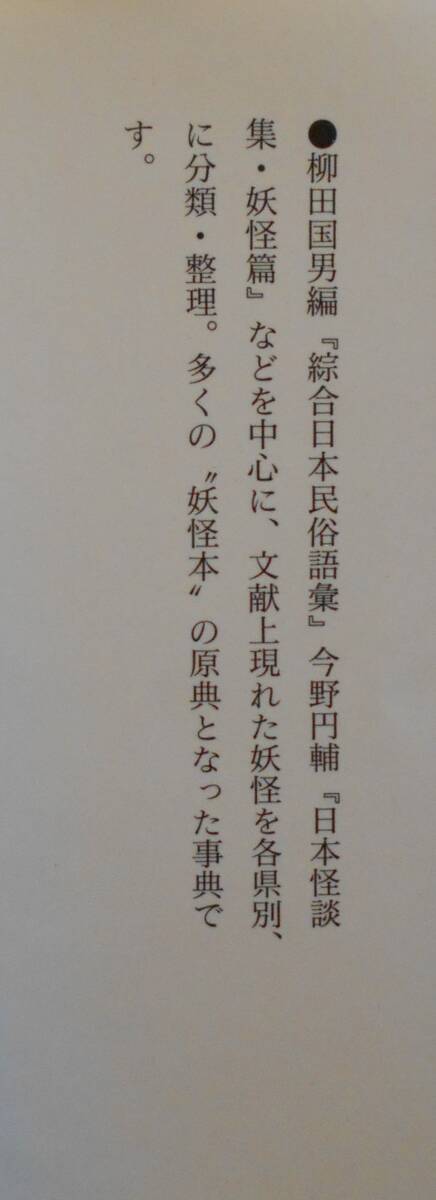 ●柳田国男編『綜合日本民俗語彙』今野円輔『日本怪談
集・妖怪篇』などを中心に、文献上現れた妖怪を各県別、
に分類・整理。多くの〝妖怪本〟の原典となった事典で
す。